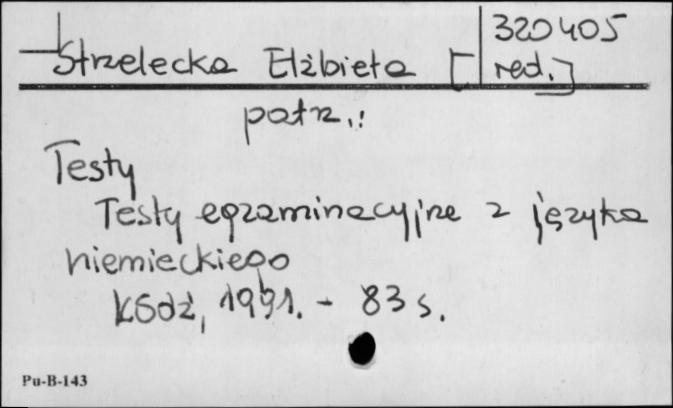 320405
Strzelecka Elżbieta [red.]
patrz:
Testy
Testy egzaminacyjne z języka
niemieckiego
Łódź, 1991. - 83 s.
Pu-B-143